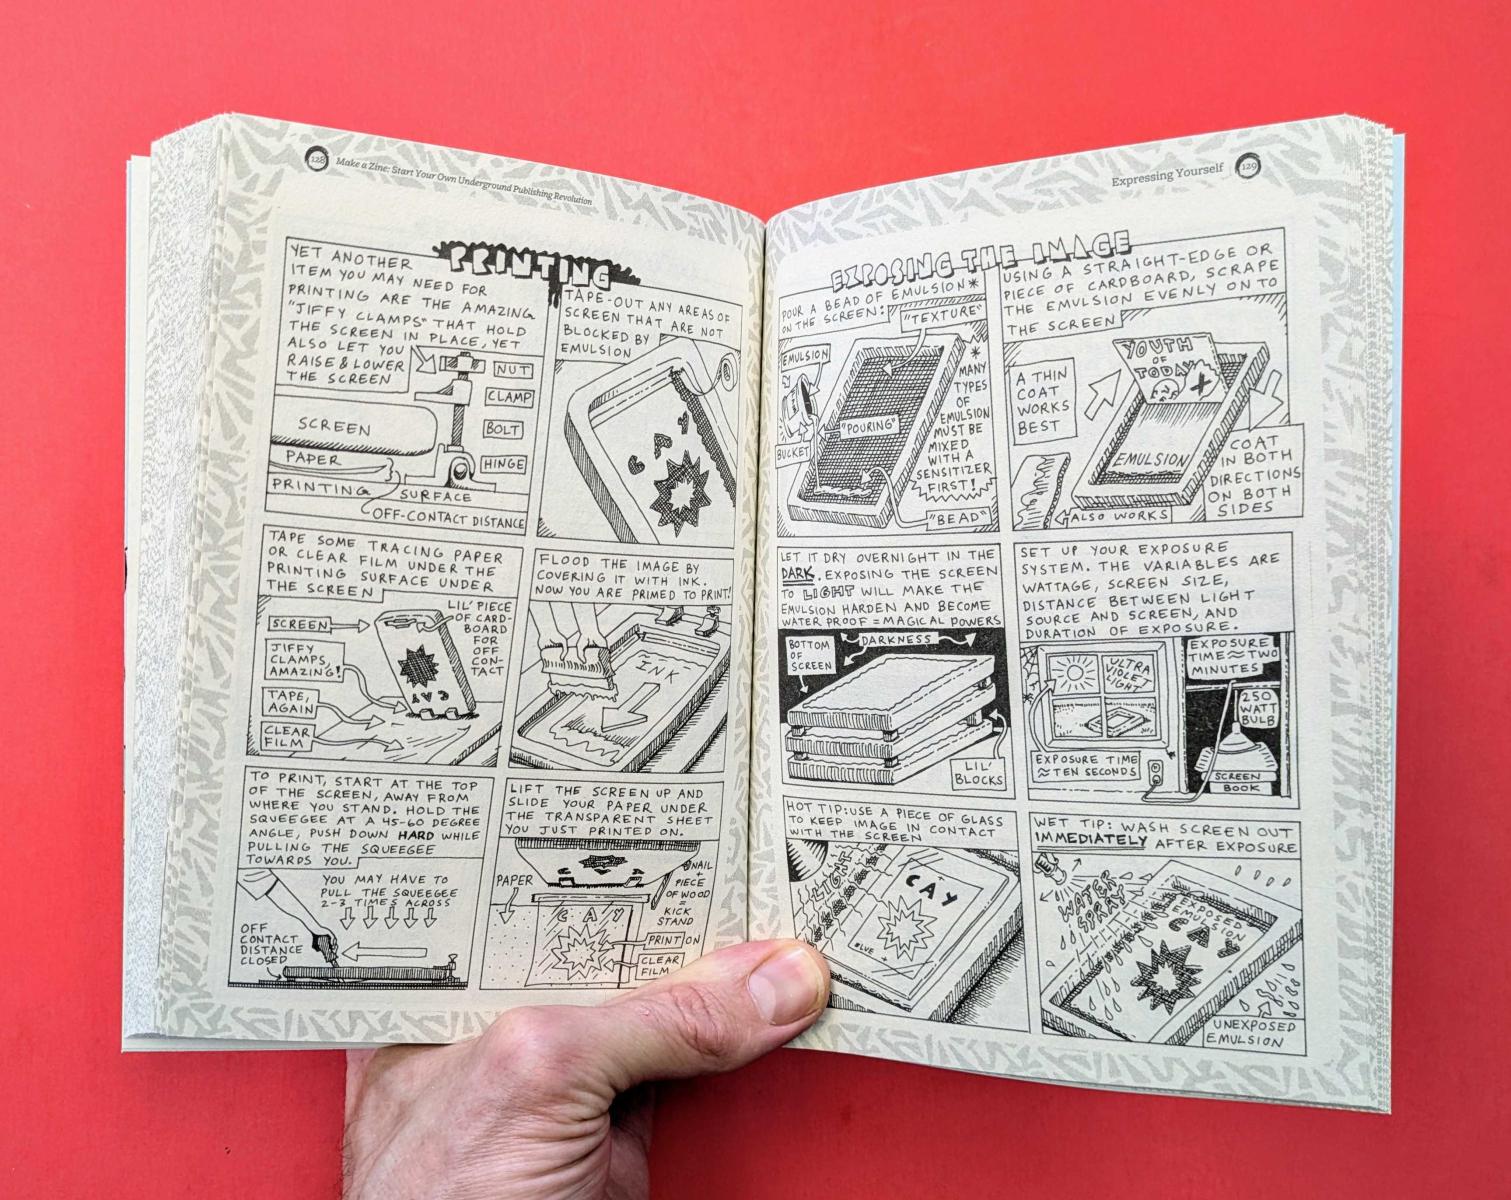 128
Make a Zine: Start Your Own Underground Publishing Revolution
PRINTING
YET ANOTHER
ITEM YOU MAY NEED FOR
PRINTING ARE THE AMAZING
"JIFFY CLAMPS" THAT HOLD
THE SCREEN IN PLACE, YET
ALSO LET YOU
RAISE & LOWER
THE SCREEN
NUT
CLAMP
BOLT
HINGE
SCREEN
PAPER
PRINTING
SURFACE
OFF-CONTACT DISTANCE
TAPE-OUT ANY AREAS OF
SCREEN THAT ARE NOT
BLOCKED BY
EMULSION
CAY
TAPE SOME TRACING PAPER
OR CLEAR FILM UNDER THE
PRINTING SURFACE UNDER
THE SCREEN
SCREEN
JIFFY
CLAMPS,
AMAZING!
TAPE,
AGAIN
CLEAR
FILM
LIL' PIECE
OF CARD-
BOARD
FOR
OFF
CON-
TACT
CAY
FLOOD THE IMAGE BY
COVERING IT WITH INK.
NOW YOU ARE PRIMED TO PRINT!
INK
TO PRINT, START AT THE TOP
OF THE SCREEN, AWAY FROM
WHERE YOU STAND. HOLD THE
SQUEEGEE AT A 45-60 DEGREE
ANGLE, PUSH DOWN HARD WHILE
PULLING THE SQUEEGEE
TOWARDS YOU.
YOU MAY HAVE TO
PULL THE SQUEEGEE
2-3 TIMES ACROSS
OFF
CONTACT
DISTANCE
CLOSED
LIFT THE SCREEN UP AND
SLIDE YOUR PAPER UNDER
THE TRANSPARENT SHEET
YOU JUST PRINTED ON.
PAPER
NAIL
+
PIECE
OF WOOD
=
KICK
STAND
CAY
PRINT ON
CLEAR
FILM
Expressing Yourself
129
EXPOSING THE IMAGE
POUR A BEAD OF EMULSION*
ON THE SCREEN:
"TEXTURE"
EMULSION
"POURING"
BUCKET
"BEAD"
*
MANY
TYPES
OF
EMULSION
MUST BE
MIXED
WITH A
SENSITIZER
FIRST!
USING A STRAIGHT-EDGE OR
PIECE OF CARDBOARD, SCRAPE
THE EMULSION EVENLY ON TO
THE SCREEN
A THIN
COAT
WORKS
BEST
YOUTH
OF
TODAY
X
EMULSION
ALSO WORKS
COAT
IN BOTH
DIRECTIONS
ON BOTH
SIDES
LET IT DRY OVERNIGHT IN THE
DARK. EXPOSING THE SCREEN
TO LIGHT WILL MAKE THE
EMULSION HARDEN AND BECOME
WATERPROOF = MAGICAL POWERS
BOTTOM
OF
SCREEN
DARKNESS
LIL'
BLOCKS
SET UP YOUR EXPOSURE
SYSTEM. THE VARIABLES ARE
WATTAGE, SCREEN SIZE,
DISTANCE BETWEEN LIGHT
SOURCE AND SCREEN, AND
DURATION OF EXPOSURE.
ULTRA
VIOLET
LIGHT
EXPOSURE TIME
≈ TEN SECONDS
EXPOSURE
TIME ≈ TWO
MINUTES
250
WATT
BULB
SCREEN
BOOK
HOT TIP: USE A PIECE OF GLASS
TO KEEP IMAGE IN CONTACT
WITH THE SCREEN
LIGHT
CAY
WET TIP: WASH SCREEN OUT
IMMEDIATELY AFTER EXPOSURE
WATER
SPRAY
EXPOSED
EMULSION
CAY
UNEXPOSED
EMULSION